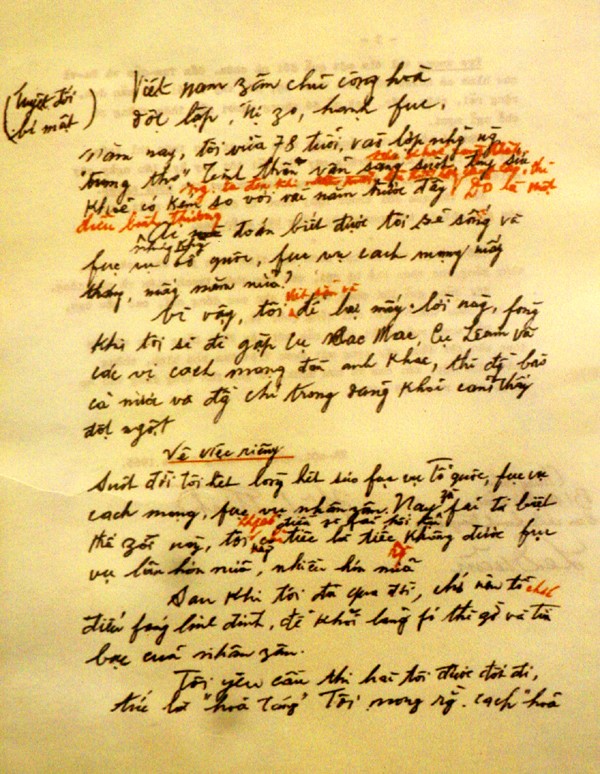 (Tuyệt đối
bí mật)
Việt nam zân chủ cộng hoà
độc lập, tự zo, hạnh fúc.
Năm nay, tôi vừa 78 tuổi, vào lớp những ng.
"trung thọ". Tinh thần vẫn sáng suốt, tuy sức
khoẻ có kém so với vài năm trước đây. Đó là một
điều bình thường.
Ai mà đoán biết được tôi sẽ sống và
fục vụ tổ quốc, fục vụ cách mạng mấy
tháng, mấy năm nữa?
Vì vậy, tôi viết sẵn và để lại mấy lời này, fòng
khi tôi sẽ đi gặp Cụ Các Mác, Cụ Lenin và
các vị cách mạng đàn anh khác, thì đồng bào
cả nước và đồng chí trong đảng khỏi cảm thấy
đột ngột.
Về việc riêng
Suốt đời tôi hết lòng hết sức fục vụ Tổ quốc, fục vụ
cách mạng, fục vụ nhân zân. Nay zù fải từ biệt
thế zới này, tôi không có điều gì fải hối hận,
chỉ tiếc là tiếc không được fục
vụ lâu hơn nữa, nhiều hơn nữa.
Sau khi tôi đã qua đời, chớ nên tổ chức
điếu fúng linh đình, để khỏi lãng fí thì zờ và tiền
bạc của nhân zân.
Tôi yêu cầu thi hài tôi được đốt đi,
tức là "hoả táng". Tôi mong rằng cách "hoả